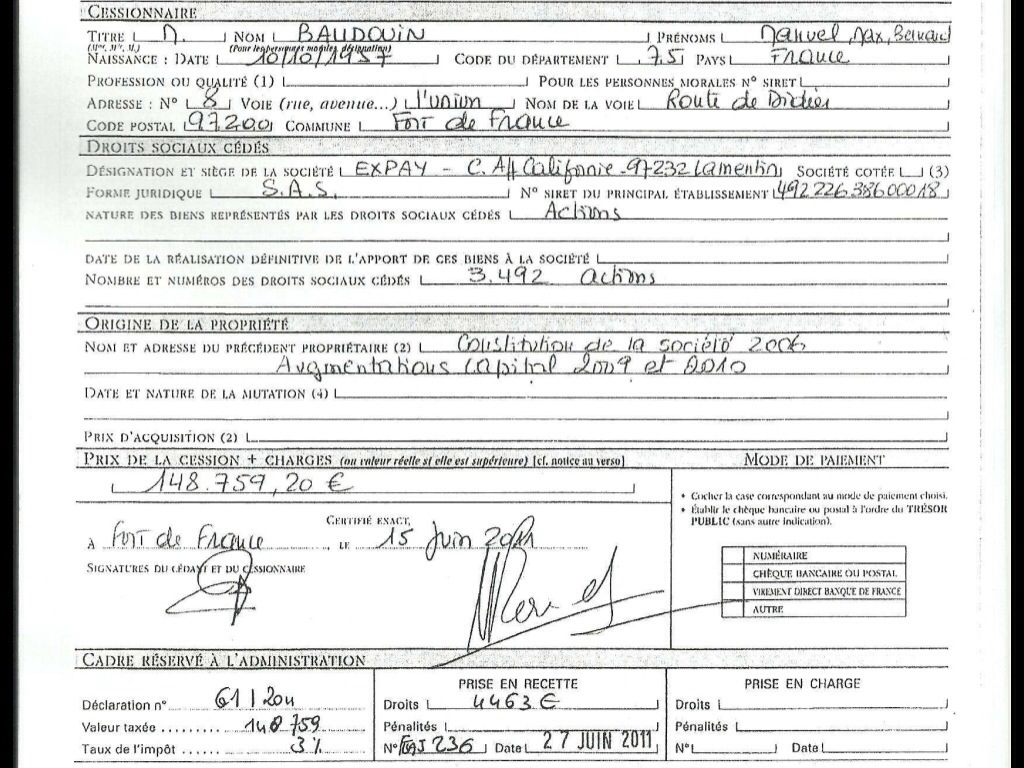 CESSIONNAIRE
TITRE M. NOM BAUDOUIN PRÉNOMS Manuel, Max, Bernard
(Mme, Mle, M.) (Pour les personnes morales, désignation)
NAISSANCE : DATE 10/10/1957 CODE DU DÉPARTEMENT 75 PAYS France
PROFESSION OU QUALITÉ (1) POUR LES PERSONNES MORALES N° SIRET
ADRESSE : N° 8 VOIE (rue, avenue...) l'union NOM DE LA VOIE Route de Didier
CODE POSTAL 97200 COMMUNE Fort de France
DROITS SOCIAUX CÉDÉS
DÉSIGNATION ET SIÈGE DE LA SOCIÉTÉ EXPAY - C. Aff Californie 97232 Lamentin SOCIÉTÉ COTÉE (3)
FORME JURIDIQUE S.A.S. N° SIRET DU PRINCIPAL ÉTABLISSEMENT 492.226.386.00018
NATURE DES BIENS REPRÉSENTÉS PAR LES DROITS SOCIAUX CÉDÉS Actions
DATE DE LA RÉALISATION DÉFINITIVE DE L'APPORT DE CES BIENS À LA SOCIÉTÉ
NOMBRE ET NUMÉROS DES DROITS SOCIAUX CÉDÉS 3.492 actions
ORIGINE DE LA PROPRIÉTÉ
NOM ET ADRESSE DU PRÉCÉDENT PROPRIÉTAIRE (2) Constitution de la société 2006
Augmentations capital 2009 et 2010
DATE ET NATURE DE LA MUTATION (4)
PRIX D'ACQUISITION (2)
PRIX DE LA CESSION + CHARGES (ou valeur réelle si elle est supérieure) [cf. notice au verso] MODE DE PAIEMENT
148.759,20 €
• Cocher la case correspondant au mode de paiement choisi.
• Établir le chèque bancaire ou postal à l'ordre du TRÉSOR
PUBLIC (sans autre indication).
CERTIFIÉ EXACT,
À Fort de France, LE 15 Juin 2011
SIGNATURES DU CÉDANT ET DU CESSIONNAIRE
NUMÉRAIRE
CHÈQUE BANCAIRE OU POSTAL
VIREMENT DIRECT BANQUE DE FRANCE
AUTRE
CADRE RÉSERVÉ À L'ADMINISTRATION
PRISE EN RECETTE PRISE EN CHARGE
Déclaration n° 61/2011 Droits 4463 € Droits
Valeur taxée ........ 148 759 Pénalités Pénalités
Taux de l'impôt ...... 3% N° 236 Date 27 JUIN 2011 N° Date